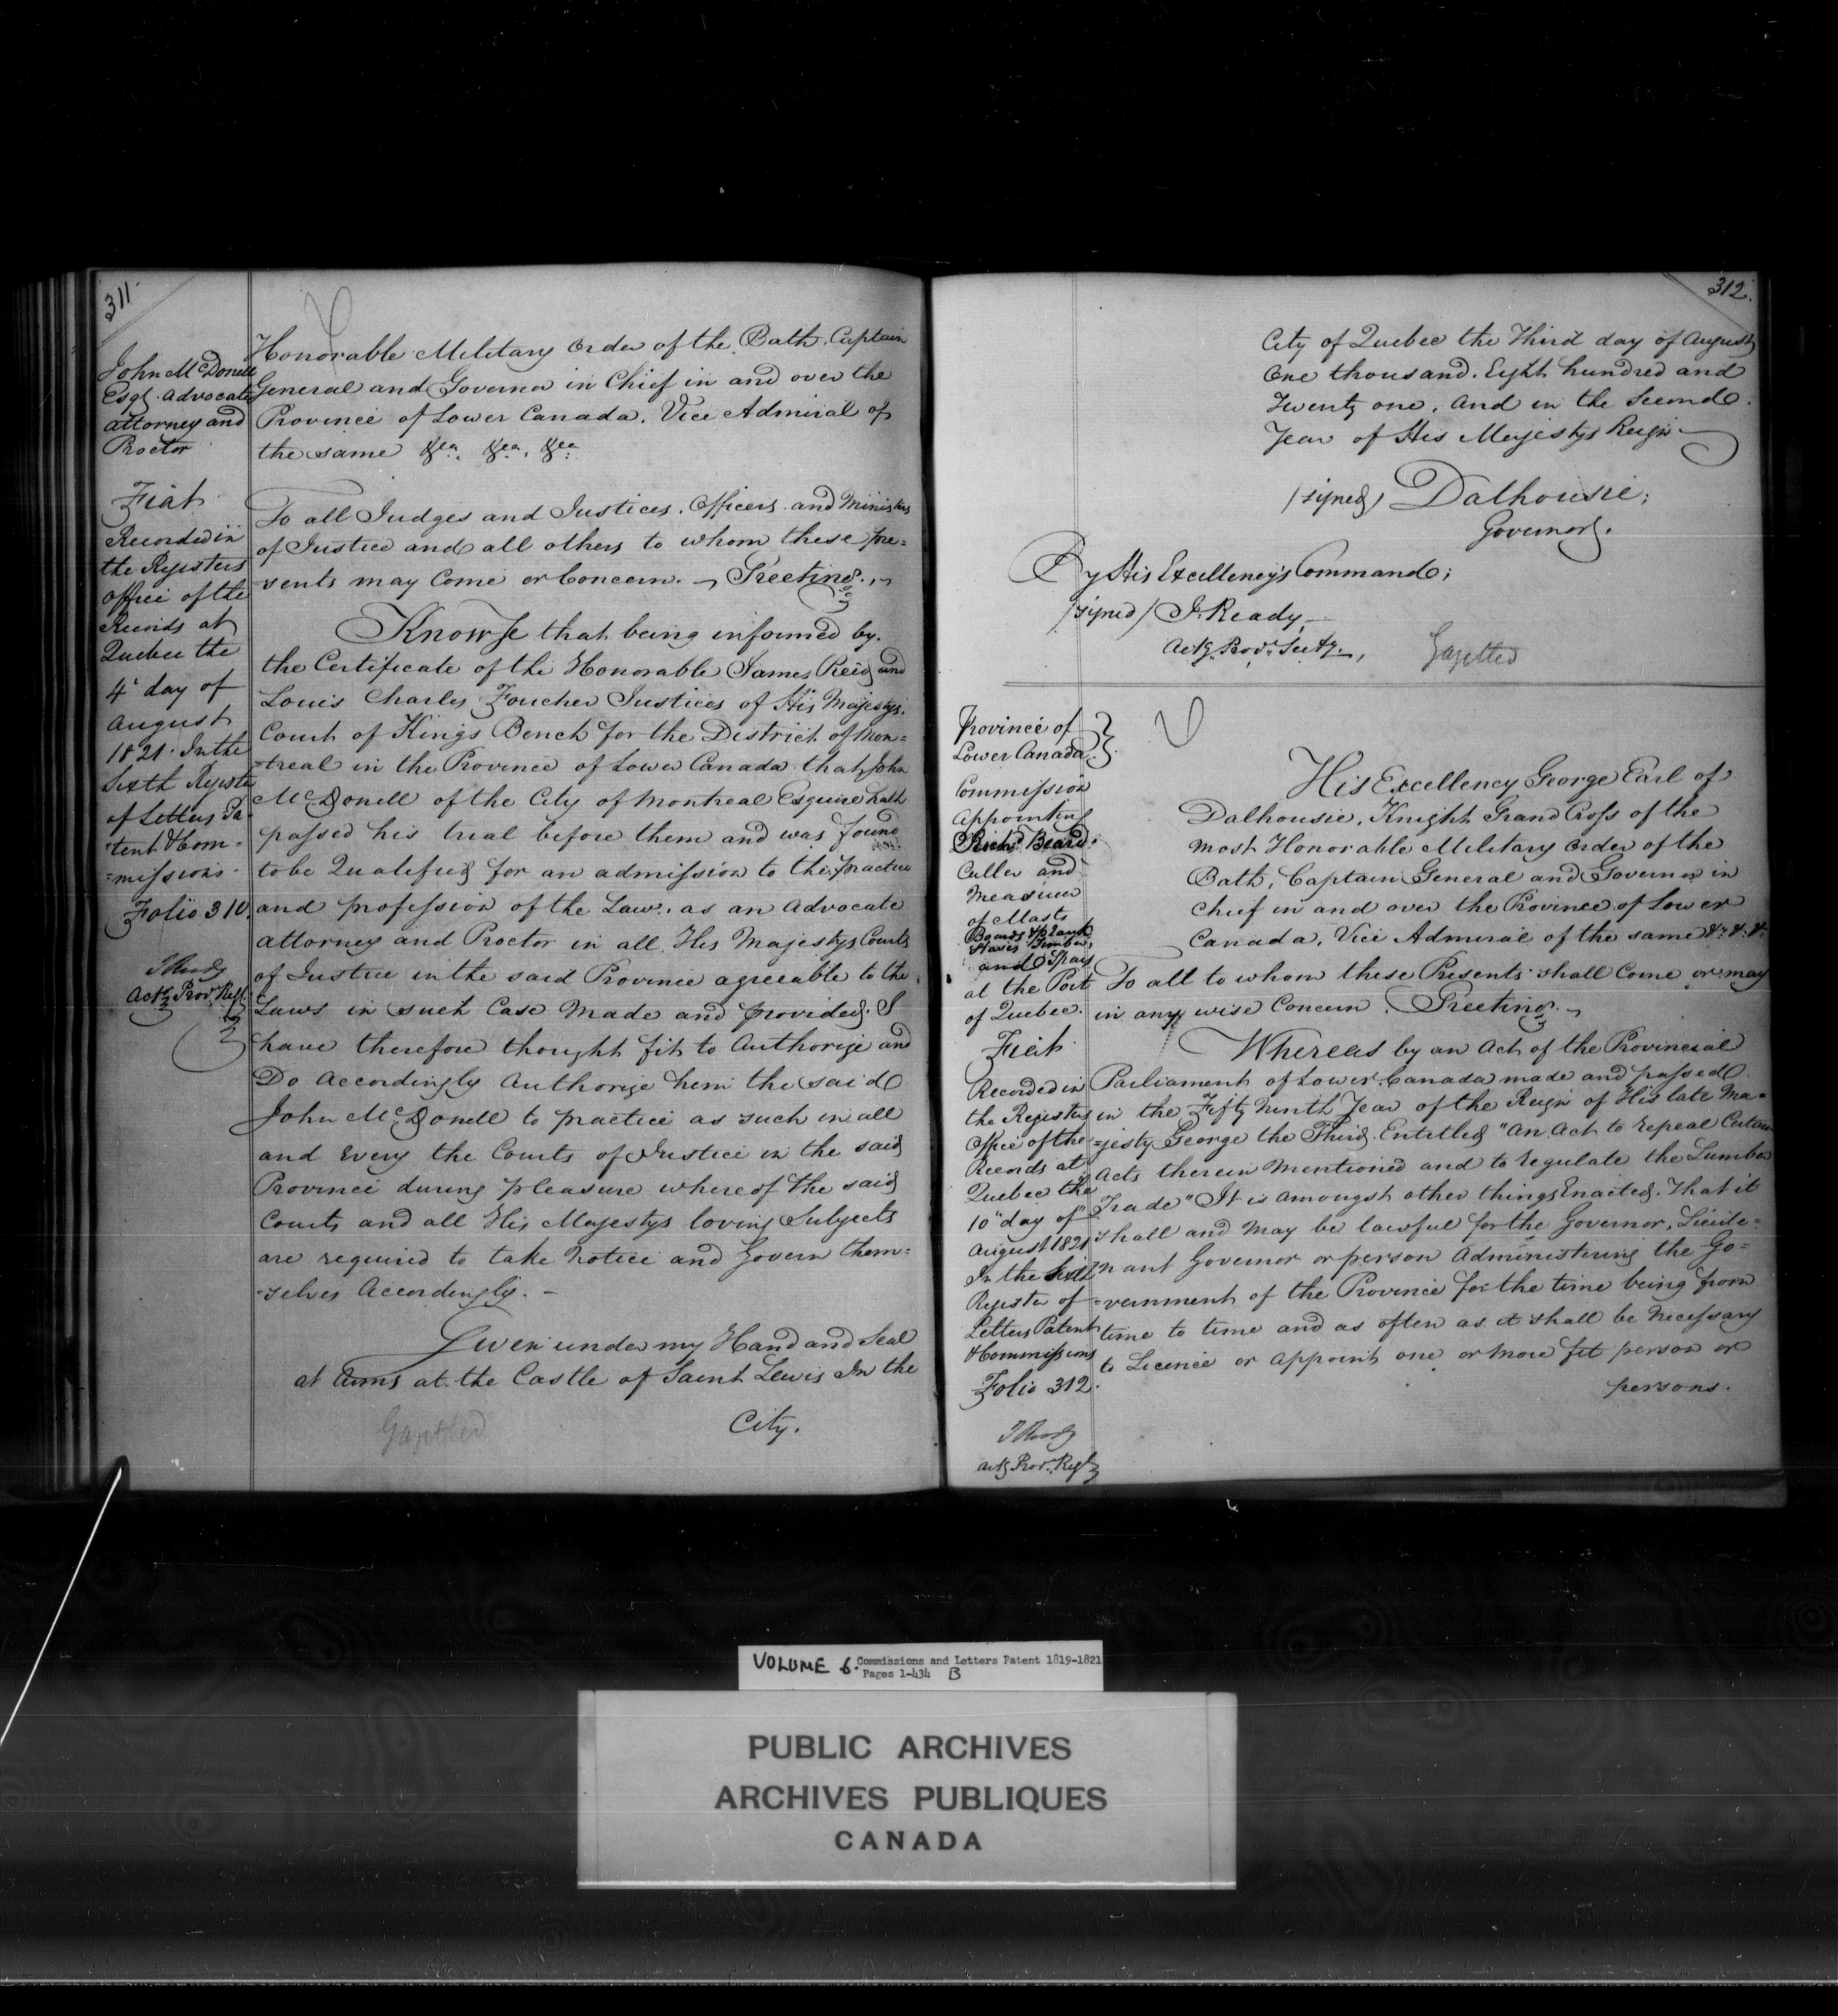 311.
John McDonell
Esqr. Advocate
attorney and
Proctor
Fiat
Recorded in
the Registers
office of the
Records at
Quebec the
4th day of
August
1821. In the
Sixth Register
of Letters Pa
tent & Com=
=missions.
Folio 310.
J Ready
Actg. Prov. Regr.
Honorable Military Order of the Bath, Captain
General and Governor in Chief in and over the
Province of Lower Canada. Vice Admiral of
the same &ca. &ca. &ca.
To all Judges and Justices. Officers and Ministers
of Justice and all others to whom these pre=
sents may Come or Concern. Greeting.
Know Ye that being informed by
the Certificate of the Honorable James Reid and
Louis Charles Foucher Justices of His Majestys
Court of Kings Bench for the District of Mon=
=treal in the Province of Lower Canada that John
McDonell of the City of Montreal Esquire hath
passed his trial before them and was found
to be Qualified for an admission to the practice
and profession of the Law, as an Advocate
attorney and Proctor in all His Majestys Courts
of Justice in the said Province agreeable to the
Laws in such Case Made and provided. I
have therefore thought fit to Authorize and
Do Accordingly Authorize him the said
John McDonell to practice as such in all
and Every the Courts of Justice in the said
Province during pleasure whereof the said
Courts and all His Majestys loving Subjects
are required to take Notice and Govern them=
=selves Accordingly. -
Given under my Hand and Seal
at Arms at the Castle of Saint Lewis In the
Gazetted
City.
312.
City of Quebec the Third day of August
One thousand. Eight hundred and
Twenty one, and in the Second
Year of His Majestys Reign
/signed/ Dalhousie;
Governor.
By His Excellency's Command;
/signed/ J. Ready
Actg. Prov. Secty.,
Gazetted
Province of
Lower Canada
Commission
Appointing
Richd. Beard
Culler and
Measurer
of Masts
Boards Plank
Staves Timber
and Spars
at the Port
of Quebec.
Fiat
Recorded in
the Registers
Office of the
Records at
Quebec the
10th day of
August 1821
In the Sixth
Register of
Letters Patent
& Commissions
Folio 312.
J Ready
actg Prov. Regr
His Excellency George Earl of
Dalhousie, Knight Grand Cross of the
most Honorable Military Order of the
Bath, Captain General and Governor in
Chief in and over the Province of Lower
Canada, Vice Admiral of the same &. &. &.
To all to whom these Presents shall Come or may
in any wise Concern. Greeting.
Whereas by an Act of the Provincial
Parliament of Lower Canada made and passed
in the Fifty Ninth Year of the Reign of His late Ma=
=jesty George the Third. Entitled "An Act to repeal Certain
Acts therein Mentioned and to regulate the Lumber
Trade" It is amongst other things Enacted. That it
shall and may be lawful for the Governor, Lieute=
nant Governor or person Administering the Go=
=vernment of the Province for the time being from
time to time and as often as it shall be Necessary
to Licence or appoint one or more fit person or
persons.
VOLUME 6. Commissions and Letters Patent 1819-1821
Pages 1-434 B
PUBLIC ARCHIVES
ARCHIVES PUBLIQUES
CANADA